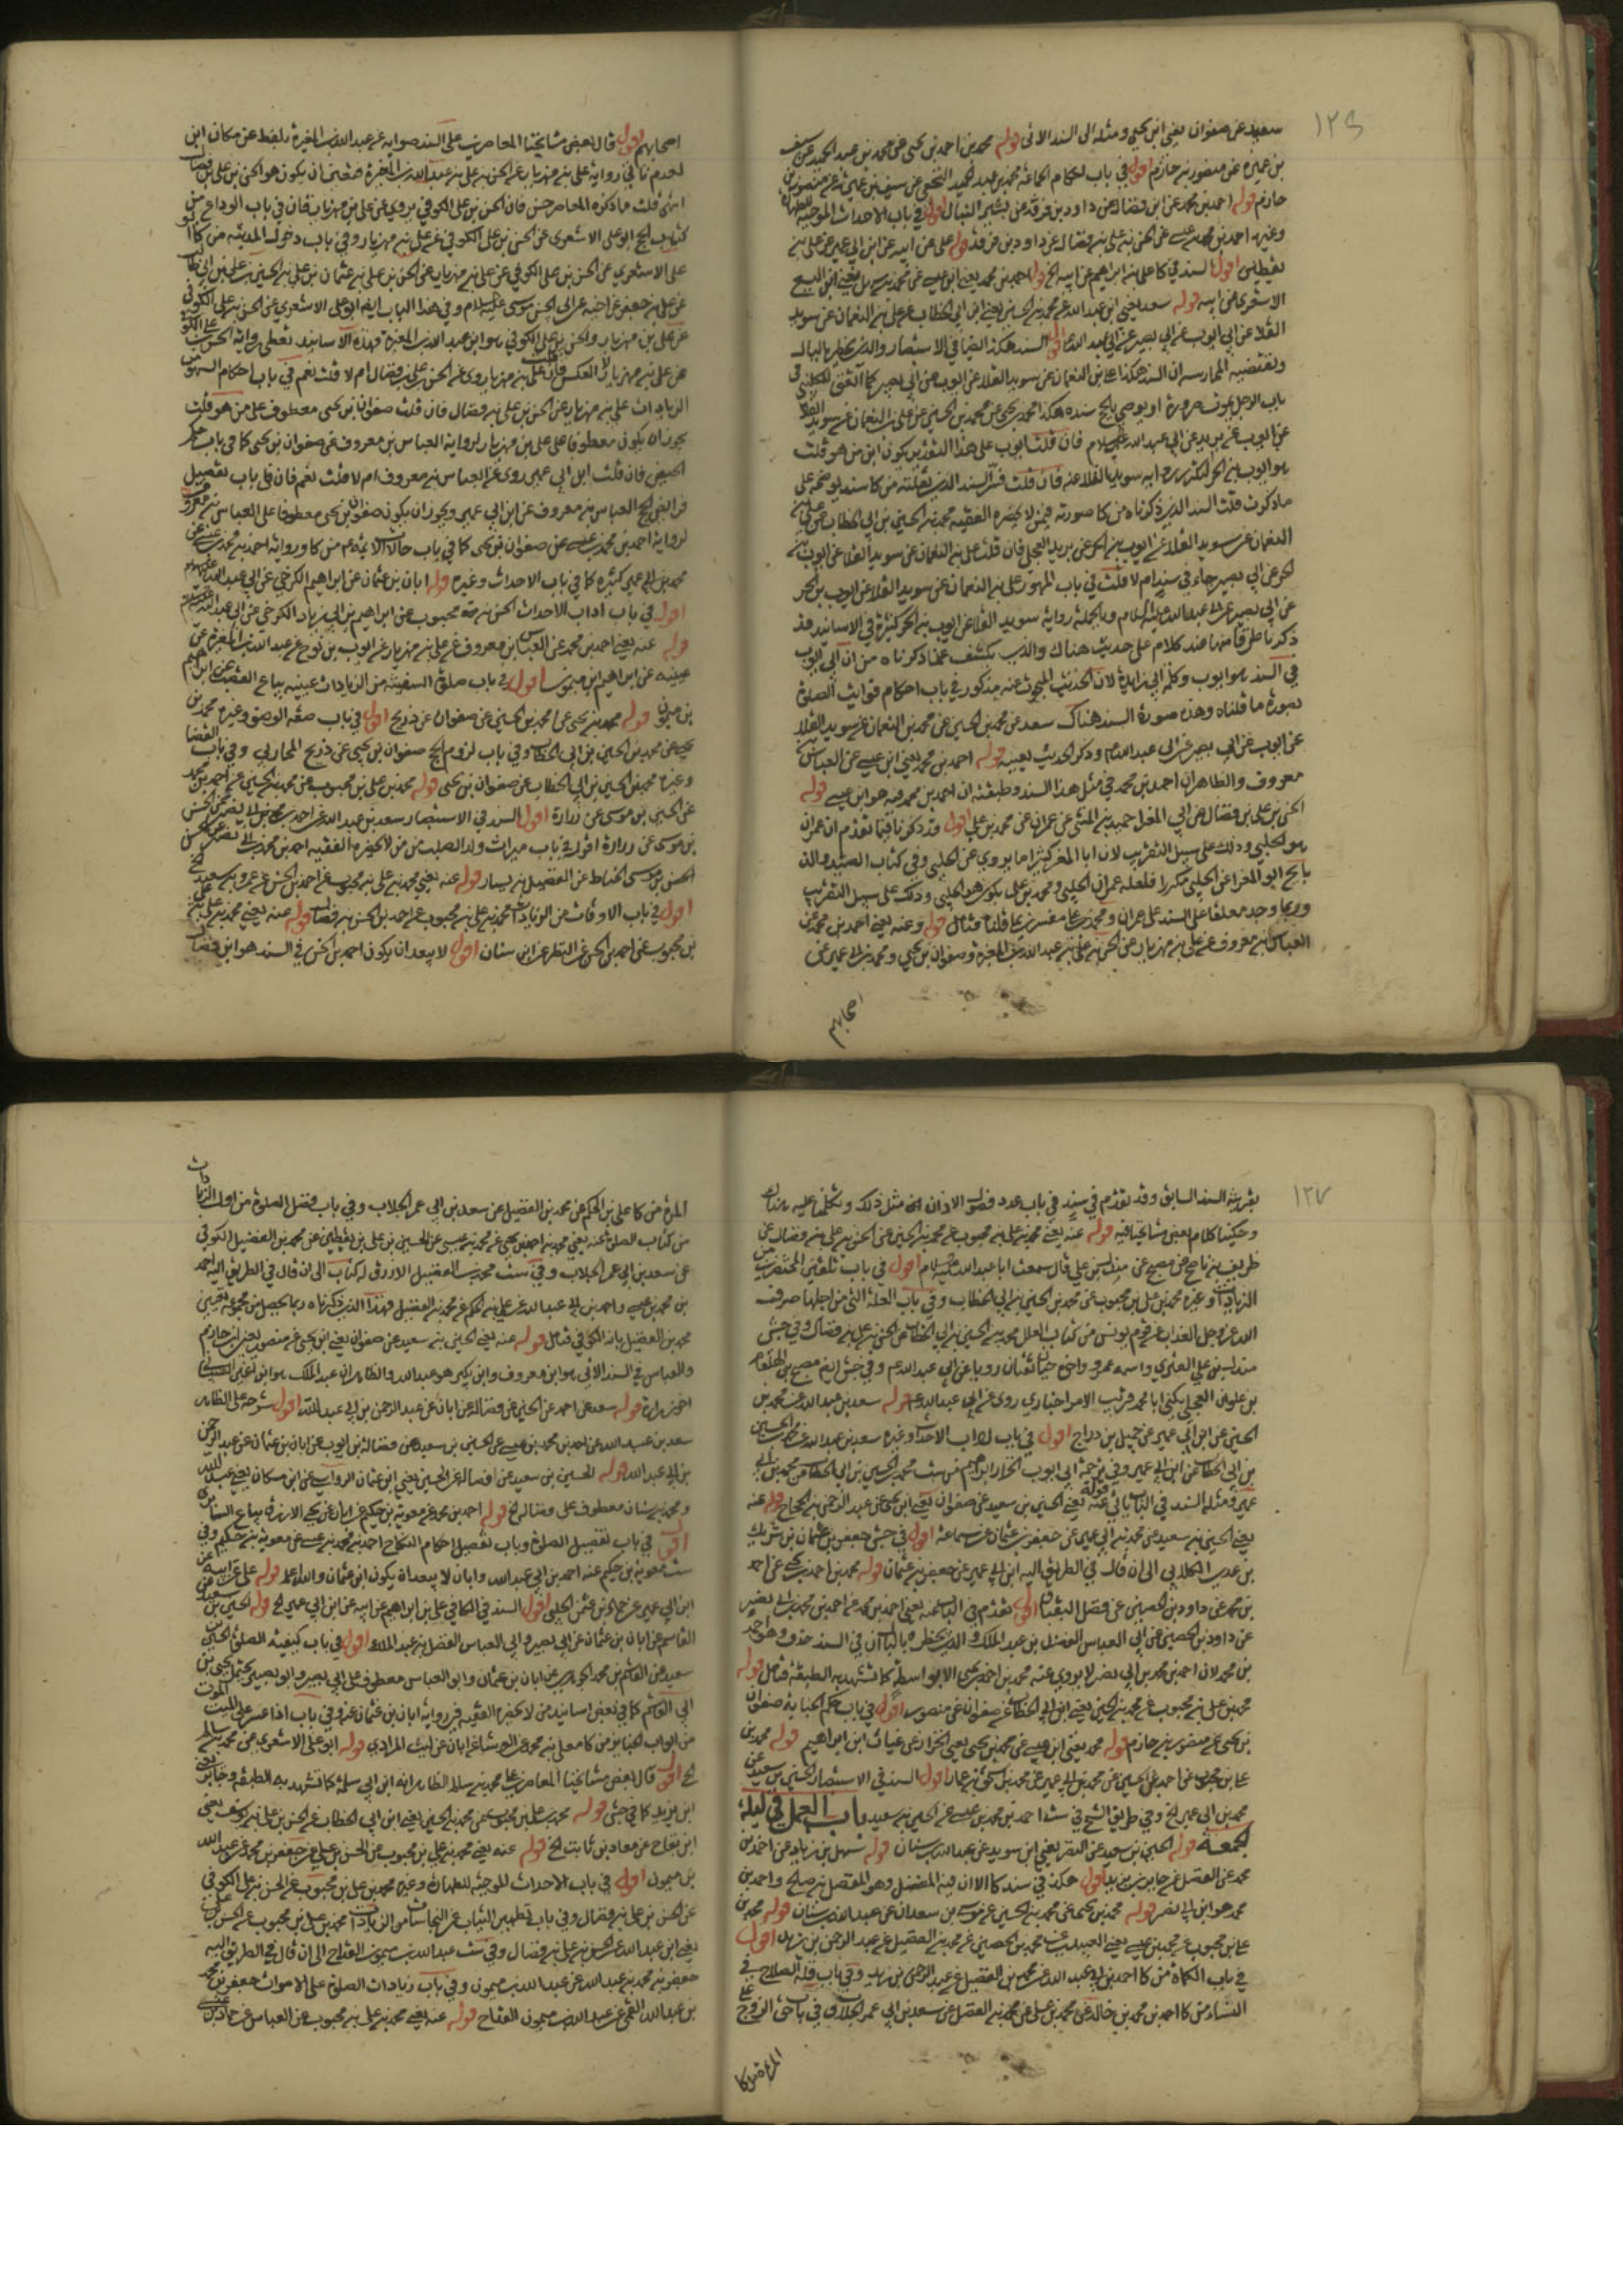 ١٣٦
سعيد عن صفوان يعني ابن يحيى ومثله الى السند الاتى قوله محمد بن احمد بن يحيى عن محمد بن عبد الحميد عن سيف
بن عميره عن منصور بن حازم اقول في باب احكام الجماعة محمد بن عبد الحميد عن سيف بن عميرة عن منصور بن
حازم قوله احمد بن محمد عن ابن فضال عن داود بن فرقد عن بشير النبال اقول في باب الاحداث الموجبة للطهارة
وغيره احمد بن محمد بن عيسى عن الحسن بن علي بن فضال عن داود بن فرقد قوله علي عن ابيه عن ابن ابي عمير عن علي بن
يقطين اقول السند في كا علي بن ابراهيم عن ابيه الخ قوله احمد بن محمد يعني ابن عيسى عن محمد بن سهل يعني ابن اليسع
الاشعرى عن ابيه قوله سعد يعني ابن عبد الله عن محمد بن الحسين يعني ابن ابي الخطاب عن علي بن النعمان عن سويد
القلا عن ابي ايوب عن ابي بصير عن ابي عبد الله اقول السند هكذا ايضا في الاستبصار والذي يخطر بالبال
ويقتضيه الممارسه ان السند هكذا علي بن النعمان عن سويد القلا عن ايوب عن ابي بصير كما اتفق للكليني في
باب الرجل يموت صرورة او يوصي بالحج سنده هكذا محمد بن يحيى عن محمد بن الحسين عن علي بن النعمان عن سويد القلا
عن ايوب عن بريد عن ابي عبد الله عليه السلام فان قلت ايوب على هذا التقدير يكون ابن من هو قلت
هو ايوب بن الحر لتكرر رواية سويد القلا عنه فان قلت فسر السند الذي نقلته من كا سند يوضحه على
ما ذكرت قلت السند الذي ذكرناه من كا صورته فيمن لا يحضره الفقيه محمد بن الحسين بن ابي الخطاب عن علي بن
النعمان عن سويد القلا عن ايوب بن الحر عن بريد العجلي فان قلت علي بن النعمان عن سويد القلا عن ايوب بن
الحر عن ابي بصير جاء في سند ام لا قلت في باب المهور علي بن النعمان عن سويد القلا عن ايوب بن الحر
عن ابي بصير عن ابي عبد الله عليه السلام وبالجملة رواية سويد القلا عن ايوب بن الحر كثيرة في الاسانيد قد
ذكرنا طرفا منها عند كلام على حديث هناك والذي يكشف عما ذكرناه من ان ابي ايوب
في السند هو ايوب وكلمة ابي زايدة لان الحديث المبحوث عنه مذكور في باب احكام فوايت الصلوة
بصورة ما قلناه وهذه صورة السند هناك سعد عن محمد بن الحسين عن محمد بن النعمان عن سويد القلا
عن ايوب عن ابي بصير عن ابي عبد الله وذكر الحديث بعينه قوله احمد بن محمد يعني ابن عيسى عن العباس بن
معروف والظاهر ان احمد بن محمد في مثل هذا السند وطبقته ان احمد بن محمد فيه هو ابن عيسى قوله
الحسن بن علي بن فضال عن ابي المغرا حميد بن المثنى عن عمران عن محمد بن علي اقول قد ذكرنا فيما تقدم ان عمران
هو الحلبي وذلك على سبيل التقريب لان ابا المغرا كثيرا ما يروي عن الحلبي وفي كتاب الصيد والذ
بايح ابو المغرا عن الحلبي مكررا فلعله عمران الحلبي ومحمد بن علي يكون هو الحلبي وذلك على سبيل التقريب
وربما وجد معلقا على السند على عمران ومحمد بن علي مفسرين بما قلنا فتأمل قوله وعنه يعني احمد بن محمد عن
العباس بن معروف عن علي بن مهزيار عن الحسن بن علي بن عبد الله بن المغيرة وصفوان بن يحيى ومحمد بن ابي عمير عن
اصحابهم
اصحابهم اقول قال بعض مشايخنا المعاصرين على السند صوابه عن عبد الله بن المغيرة بلفظ عن مكان ابن
انتهى قلت ما ذكره المعاصر حسن فان الحسن بن علي الكوفي يروي عن علي بن مهزيار فان في باب الوداع من
كتاب الحج ابو علي الاشعرى عن الحسن بن علي الكوفي عن علي بن مهزيار وفي باب دخول المدينه من كا ابو
الزيادات علي بن مهزيار عن الحسن بن علي بن فضال فان قلت صفوان بن يحيى معطوف على من هو قلت
يجوز ان يكون معطوفا على علي بن مهزيار لرواية العباس بن معروف عن صفوان بن يحيى كما في باب حكم
الحيض فان قلت ابن ابي عمير روى عن العباس بن معروف ام لا قلت نعم فان في باب تفصيل
فرائض الحج العباس بن معروف عن ابن ابي عمير ويجوز ان يكون صفوان بن يحيى معطوفا على العباس بن معروف
لرواية احمد بن محمد بن عيسى عن صفوان بن يحيى كما في باب حالات الائمة من كا ورواية احمد بن محمد بن عيسى عن
محمد بن ابي عمير كثيرة كما في باب الاحداث وغيره قوله ابان بن عثمان عن ابراهيم الكرخي عن ابي عبد الله عليه السلام
اقول في باب اداب الاحداث الحسن بن محبوب عن ابراهيم بن ابي زياد الكرخي عن ابي عبد الله
قوله عنه يعني احمد بن محمد عن العباس بن معروف عن علي بن مهزيار عن ايوب بن نوح عن عبد الله بن المغيرة عن
عيينه عن ابراهيم ابن ميمون اقول في باب صلوة السفينة من الزيادات عيينه بياع القصب عن ابراهيم
بن ميمون قوله محمد بن يحيى عن محمد بن الحسين عن صفوان عن ذريح اقول في باب صفة الوضوء وغيره محمد بن
يحيى عن محمد بن الحسين بن ابي الخطاب وفي باب لزوم الحج صفوان بن يحيى عن ذريح المحاربي وفي باب القضا
وغيره محمد بن الحسين بن ابي الخطاب عن صفوان بن يحيى قوله محمد بن علي بن محبوب عن محمد بن الحسين عن احمد بن محمد
عن الحسين بن موسى عن زرارة اقول السند في الاستبصار سعد بن عبد الله عن احمد بن محمد بن ابي نصر عن الحسن
بن موسى عن زرارة اقول في باب ميراث ولد الصلب من من لا يحضره الفقيه احمد بن محمد بن ابي نصر عن
الحسن بن موسى الخياط عن الفضيل بن يسار قوله عنه يعني محمد بن علي بن محبوب عن احمد بن الحسن عن عمرو بن سعيد الخ
اقول في باب الاوقات من الزيادات محمد بن علي بن محبوب عن احمد بن الحسن بن فضال قوله عنه يعني محمد بن علي
بن محبوب عن احمد بن الحسن عن النضر عن ابن سنان اقول لا يبعد ان يكون احمد بن الحسن في السند هو ابن فضال
١٣٧
بقرينة السند السابق وقد تقدم في سند في باب عدد فصول الاذان مثل ذلك وتكلمنا عليه هناك
وحكينا كلام بعض مشايخنا فيه قوله عنه يعني محمد بن علي بن محبوب عن محمد بن الحسين عن الحسن بن علي بن فضال عن
طريف بن ناصح عن مصبح عن مندل بن علي قال سمعت ابا عبد الله عليه السلام اقول في باب تلقين المحتضرين من
الزيادات وغيره محمد بن علي بن محبوب عن محمد بن الحسين بن ابي الخطاب وفي باب العلة التي من اجلها صرف
الله عز وجل العذاب عن قوم يونس من كتاب العلل محمد بن الحسين بن ابي الخطاب عن الحسن بن علي بن فضال وفي جش
مندل بن علي العنزي واسمه عمرو واخوه حيان ثقتان رويا عن ابي عبد الله وفي جش ايضا مصبح بن الهلقام
بن علوان العجلي يكنى ابا محمد قريب الامر اخباري روى عن ابي عبد الله قوله سعد بن عبد الله عن محمد بن
الحسين عن ابن ابي عمير عن جميل بن دراج اقول في باب اداب الاحداث وغيره سعد بن عبد الله عن محمد بن الحسين
عمير ومثله السند في الباب ياتي قوله عنه يعني الحسين بن سعيد عن صفوان يعني ابن يحيى عن عبد الرحمن بن الحجاج قوله عنه
يعني الحسين بن سعيد عن محمد بن ابي عمير عن جعفر بن عثمان عن سماعة اقول في جش جعفر بن عثمان بن شريك
بن عدي الكلابي الى ان قال في الطريق اليه ابن ابي عمير عن جعفر بن عثمان قوله محمد بن احمد بن يحيى عن احمد
بن محمد عن داود بن الحصين عن فضل البقباق اقول تقدم في الباب عنه يعني احمد بن محمد عن احمد بن محمد بن ابي نصر
عن داود بن الحصين عن ابي العباس الفضل بن عبد الملك والذي يخطر بالبال ان في السند حذف وهو احمد
بن محمد لان احمد بن محمد بن ابي نصر لا يروي عنه محمد بن احمد بن يحيى الا بواسطة كما تشهد به الطبقة فتأمل قوله
محمد بن علي بن محبوب عن محمد بن الحسين يعني ابن ابي الخطاب عن صفوان عن منصور اقول في باب حكم الجنابة صفوان
بن يحيى عن منصور بن حازم قوله محمد يعني ابن عيسى عن محمد بن يحيى يعني الخزاز عن غياث ابن ابراهيم قوله محمد بن
علي بن محبوب عن احمد عن الحسين عن محمد بن ابي عمير عن محمد بن اسحق بن عمار اقول السند في الاستبصار الحسين بن سعيد عن
محمد بن ابي عمير الخ وفي طريق الشيخ في ست احمد بن محمد بن عيسى عن الحسين بن سعيد باب العمل في ليلة
الجمعة قوله الحسين بن سعيد عن النضر يعني ابن سويد عن عبد الله بن سنان قوله سهل بن زياد عن احمد بن
محمد عن المفضل عن جابر بن يزيد اقول هكذا في سند كا الا ان فيه المفضل وهو المفضل بن صالح واحمد بن
محمد هو ابن ابي نصر قوله محمد بن يحيى عن محمد بن الحسين عن موسى بن سعدان عن عبد الله بن سنان قوله محمد بن
علي بن محبوب عن محمد بن عيسى يعني العبيدي عن محمد بن الحصين عن محمد بن الفضيل عن عبد الرحمن بن زيد اقول
في باب الكماة من كا احمد بن ابي عبد الله عن محمد بن الفضيل عن عبد الرحمن بن زيد وفي باب قلة الصلاح في
النساء من كا احمد بن محمد بن خالد عن محمد بن علي عن محمد بن الفضيل عن سعد بن ابي عمر الجلاب وفي باب حق الزوج على
المرءة من كا
المرءة من كا علي بن الحكم عن محمد بن الفضيل عن سعد بن ابي عمر الجلاب وفي باب فضل الصلوة من اول الزيادات
من كتاب الصلوة عنه يعني محمد بن احمد بن يحيى عن محمد بن عيسى عن الحسين بن علي بن يقطين عن محمد بن الفضيل الكوفي
عن سعد بن ابي عمر الجلاب وفي ست محمد بن الفضيل الازرق له كتاب الى ان قال في الطريق اليه احمد
بن محمد بن عيسى واحمد بن ابي عبد الله عن علي بن الحكم عن محمد بن الفضيل فهذا الذي ذكرناه ربما يحصل من مجموعه تعيين
محمد بن الفضيل بانه الكوفي فتامل قوله عنه يعني الحسين بن سعيد عن صفوان يعني ابن يحيى عن منصور يعني ابن حازم
والعباس في السند الاتى هو ابن معروف وابن بكير هو عبد الله والظاهر ان عبد الملك هو ابن اعين الشيباني
اخو زرارة قوله سعد عن احمد عن الحسين عن فضالة عن ابان عن عبد الرحمن بن ابي عبد الله اقول شرحه على الظاهر
سعد بن عبد الله عن احمد بن محمد بن عيسى عن الحسين بن سعيد عن فضالة بن ايوب عن ابان بن عثمان عن عبد الرحمن
بن ابي عبد الله قوله الحسين بن سعيد عن فضالة عن الحسين يعني ابن عثمان الرواسي عن ابن مسكان يعني عبد الله
ومحمد بن سنان معطوف على فضالة الخ قوله احمد بن محمد عن معوية بن حكيم عن ابان عن يحيى الازرق بياع السابرى
اقول في باب تفصيل الصلوة وباب تفصيل احكام النكاح احمد بن محمد بن عيسى عن معوية بن حكيم وفي
ست معوية بن حكيم عنه احمد بن ابي عبد الله وابان لا يبعد ان يكون ابن عثمان والله اعلم قوله علي عن ابيه عن
ابن ابي عمير عن حماد بن عثمن الحلبي اقول السند في الكافي علي بن ابراهيم عن ابيه عن ابن ابي عمير الخ قوله الحسين بن سعيد عن
القاسم عن ابان بن عثمان عن ابي بصير وابي العباس الفضل بن عبد الملك اقول في باب كيفية الصلوة الحسين بن
سعيد عن القاسم بن محمد الجوهري عن ابان بن عثمان وابو العباس معطوف على ابي بصير وابو بصير يحتمل يحيى بن
ابي القاسم كما في بعض اسانيد من لا يحضره الفقيه في رواية ابان بن عثمان عنه وفي باب اذا عسر على الميت الموت
من ابواب الجنايز من كا معلى بن محمد عن الوشا عن ابان عن ليث المرادي قوله ابو علي الاشعرى عن محمد بن سالم
الخ اقول قال بعض مشايخنا المعاصرين على محمد بن سالم الظاهر انه ابن ابي سلمة كما تشهد به الطبقة وجابر يعني
ابن يزيد كما في جش قوله محمد بن علي بن محبوب عن محمد بن الحسين يعني ابن ابي الخطاب عن الحسن بن علي بن يوسف يعني
ابن بقاح عن معاذ بن ثابت الخ قوله عنه يعني محمد بن علي بن محبوب عن الحسن بن علي عن جعفر بن محمد عن عبد الله
بن ميمون اقول في باب الاحداث الموجبه للطهارة وغيره محمد بن علي بن محبوب عن الحسن بن علي الكوفي
عن الحسن بن علي بن فضال وفي باب تطهير الثياب عن النجاسات من الزيادات محمد بن علي بن محبوب عن الحسن بن علي
يعني ابن عبد الله عن الحسن بن علي بن فضال وفي ست عبد الله بن ميمون القداح الى ان قال في الطريق اليه
جعفر بن محمد بن عبد الله عن عبد الله بن ميمون وفي باب زيادات الصلوة على الاموات جعفر بن محمد
بن عبد الله القمي عن عبد الله بن ميمون القداح قوله عنه يعني محمد بن علي بن محبوب عن العباس عن حماد بن عيسى